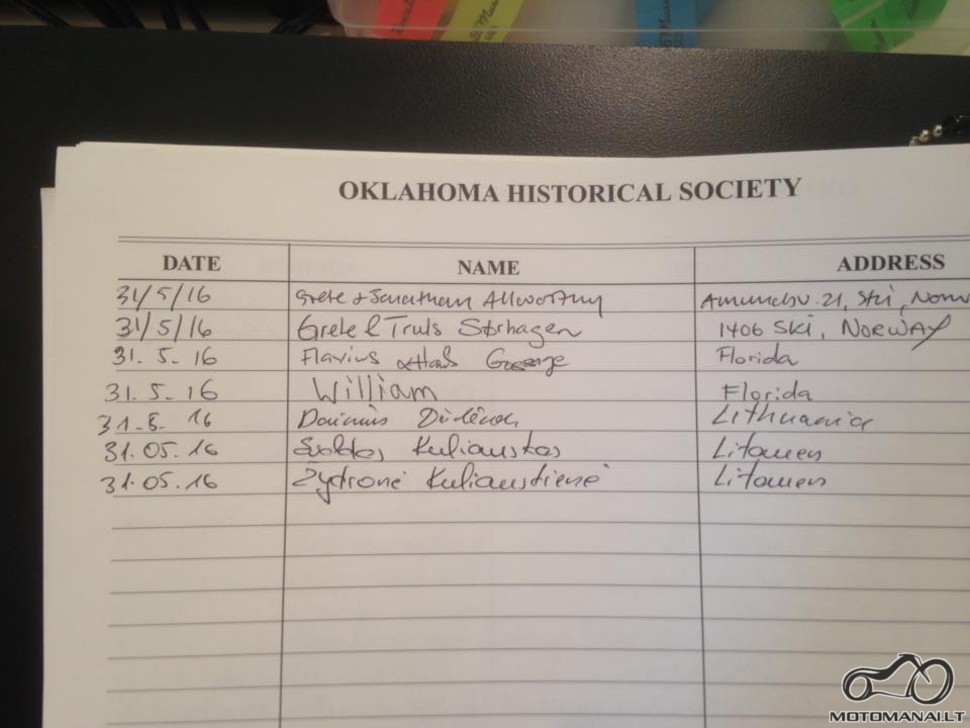 OKLAHOMA HISTORICAL SOCIETY
DATE NAME ADDRESS
31/5/16 Grete & Jonathan Allworthy 21, Ski,
31/5/16 Grete & Truls Størhagen 1406 Ski, NORWAY
31. 5. 16 Flavius Florida
31. 5. 16 William Florida
31. 5. 16 Dainius Lithuania
31.05.16 Kulianskas Litauen
31.05.16 Zydronė Kulianskienė Litauen
MOTOMANAI.LT